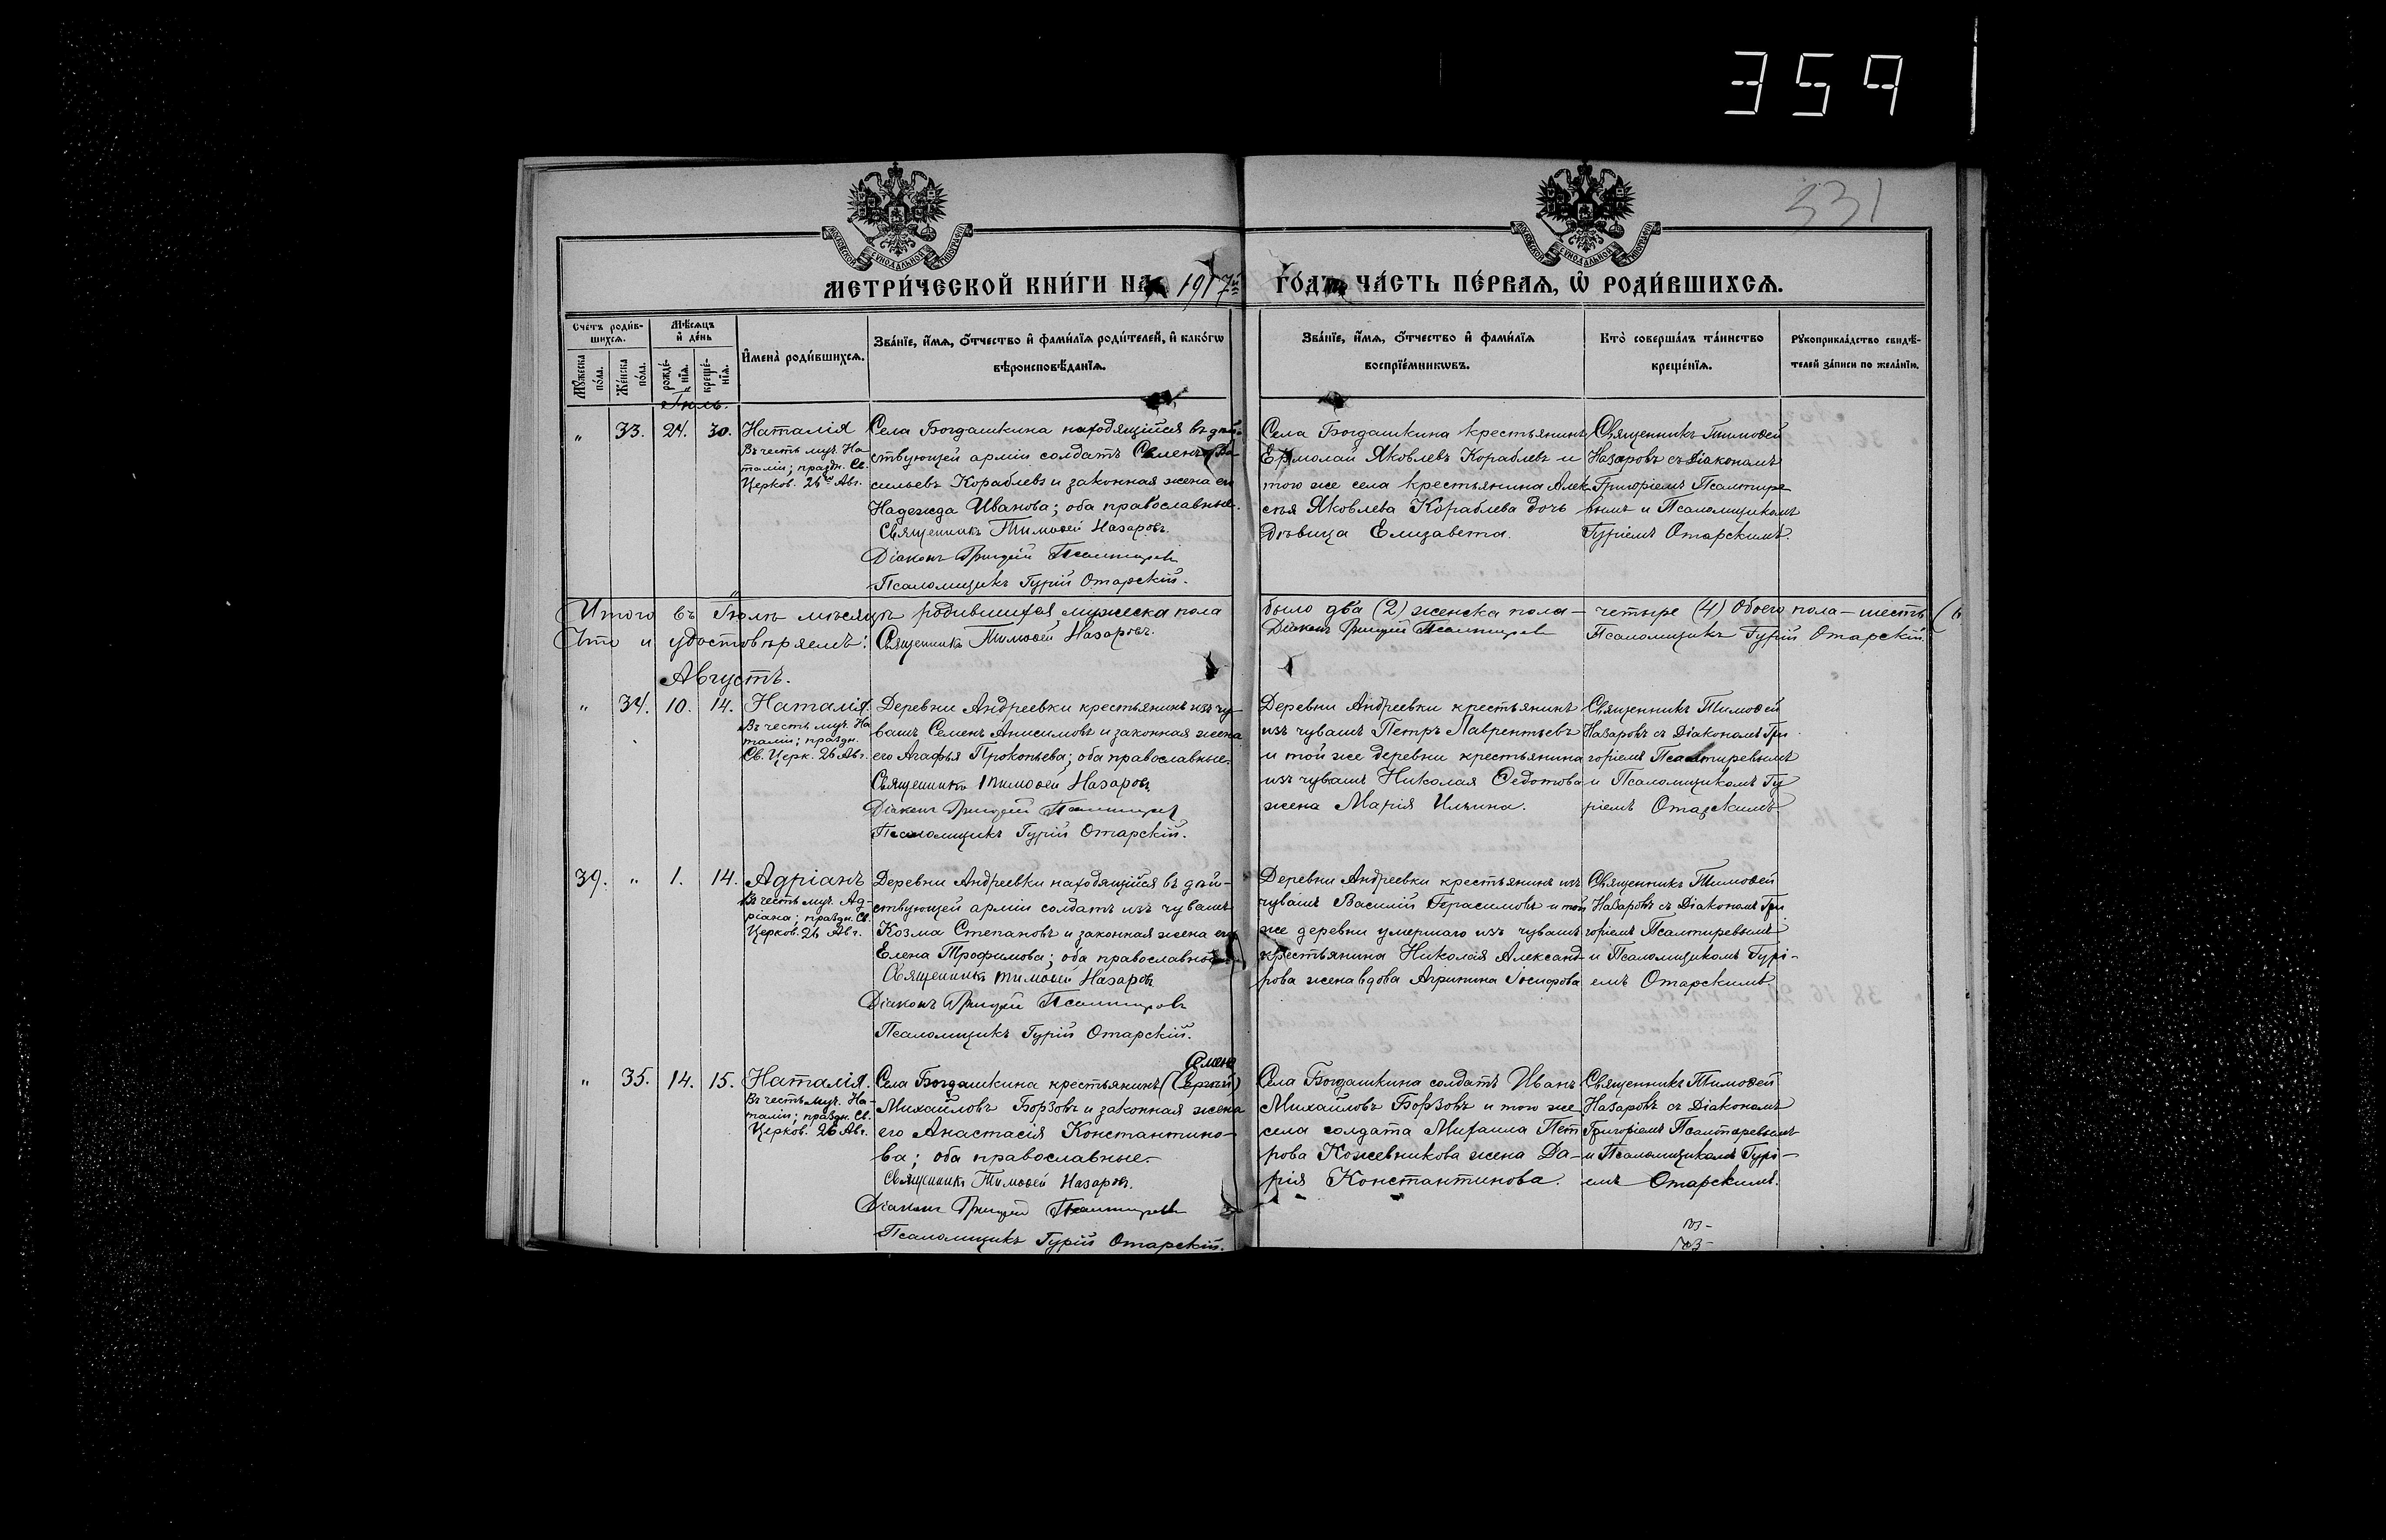 359
331
МОСКОВСКОЙ СѴНОДАЛЬНОЙ ТИПОГРАФІИ
МОСКОВСКОЙ СѴНОДАЛЬНОЙ ТИПОГРАФІИ
МЕТРИ́ЧЕСКОЙ КНИ́ГИ НА 1917й ГО́ДЪ ЧА́СТЬ ПЕ́РВАѦ, Ѡ҆ РОДИ́ВШИХСѦ.
Сче́тъ роди́в-
шихсѧ.
Мѣ́сѧцъ
и҆ де́нь
Мꙋ́жеска
по́ла.
Же́нска
по́ла.
рожде́-
нїѧ.
креще́-
нїѧ.
И҆мена̀ роди́вшихсѧ.
Зва́нїе, и҆́мѧ, ѻ҆́тчество и҆ фами́лїѧ роди́телей, и҆ како́гѡ
вѣроисповѣ́данїѧ.
Зва́нїе, и҆́мѧ, ѻ҆́тчество и҆ фами́лїѧ
воспрїе́мникѡвъ.
Кто̀ соверша́лъ та́инство
креще́нїѧ.
Рꙋкоприкла́дство свидѣ́-
телей за́писи по жела́нїю.
Іюль.
„ 33. 24. 30. Наталія
Въ честь муч. На-
таліи; праздн. Св.
Церков. 26го Авг.
Села Богдашкина находящійся въ дѣй-
ствующей арміи солдатъ Семенъ Ва-
сильевъ Кораблевъ и законная жена его
Надежда Иванова; оба православные.
Священникъ Тимоѳей Назаровъ.
Діаконъ Григорій Псалтиревъ
Псаломщикъ Гурій Отарскій.
Села Богдашкина крестьянинъ
Ермолай Яковлевъ Кораблевъ и
того же села крестьянина Алек-
сѣя Яковлева Кораблева дочь
дѣвица Елизавета.
Священникъ Тимоѳей
Назаровъ съ Діакономъ
Григоріемъ Псалтире
вымъ и Псаломщикомъ
Гуріемъ Отарскимъ.
Итого въ Іюлѣ мѣсяцѣ родившихся мужеска пола было два (2) женска пола — четыре (4) Обоего пола — шесть (6
Что и удостовѣряемъ: Священникъ Тимоѳей Назаровъ. Діаконъ Григорій Псалтиревъ Псаломщикъ Гурій Отарскій.
Августъ.
„ 34. 10. 14. Наталія.
Въ честь муч. На
таліи; праздн.
Св. Церк. 26 Авг.
Деревни Андреевки крестьянинъ изъ чу-
вашъ Семенъ Анисимовъ и законная жена
его Агафья Прокопьева; оба православные.
Священникъ Тимоѳей Назаровъ
Діаконъ Григорій Псалтиревъ
Псаломщикъ Гурій Отарскій.
Деревни Андреевки крестьянинъ
изъ чувашъ Петръ Лаврентьевъ
и той же деревни крестьянина
изъ чувашъ Николая Ѳедотова
жена Марія Ильина.
Священникъ Тимоѳей
Назаровъ съ Діакономъ Гри
горіемъ Псалтиревымъ
и Псаломщикомъ Гу
ріемъ Отарскимъ
39. „ 1. 14. Адріанъ
Въ честь муч. Ад-
ріана; праздн. Св.
Церков. 26 Авг.
Деревни Андреевки находящійся въ дѣй-
ствующей арміи солдатъ изъ чувашъ
Козма Степановъ и законная жена его
Елена Трофимова; оба православные.
Священникъ Тимоѳей Назаровъ
Діаконъ Григорій Псалтировъ
Псаломщикъ Гурій Отарскій.
Деревни Андреевки крестьянинъ изъ
чувашъ Василій Герасимовъ и той
же деревни умершаго изъ чувашъ
крестьянина Николая Александ-
рова жена вдова Агрипина Іосифова
Священникъ Тимоѳей
Назаровъ съ Діакономъ Гри
горіемъ Псалтиревымъ
и Псаломщикомъ Гурі-
емъ Отарскимъ
„ 35. 14. 15. Наталія.
Въ честь муч. На-
таліи; праздн. Св.
Церков. 26 Авг.
Семенъ
Села Богдашкина крестьянинъ (Сергѣй)
Михайловъ Борзовъ и законная жена
его Анастасія Константино-
ва; оба православные.
Священникъ Тимоѳей Назаровъ.
Діаконъ Григорій Псалтиревъ
Псаломщикъ Гурій Отарскій.
Села Богдашкина солдатъ Иванъ
Михайловъ Борзовъ и того же
села солдата Михаила Пет
рова Кожевникова жена Да-
рія Константинова.
Священникъ Тимоѳей
Назаровъ съ Діакономъ
Григоріемъ Псалтаревымъ
и Псаломщикомъ Гурі-
емъ Отарскимъ.